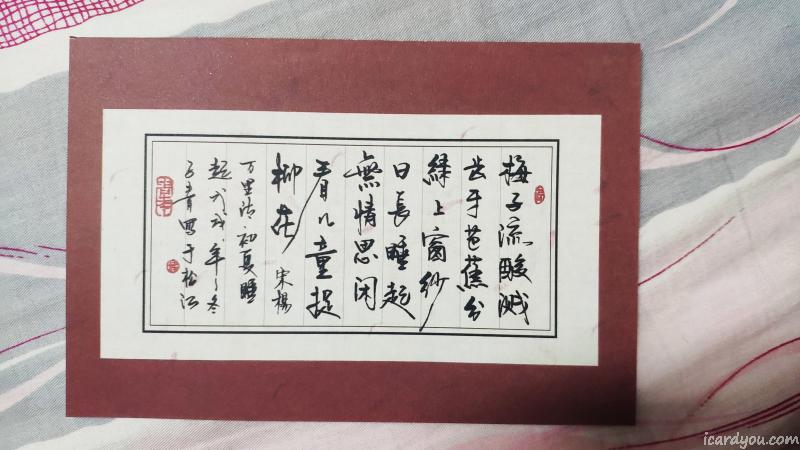 梅子流酸溅
齿牙芭蕉分
緑上窗纱
日長睡起
無情思闲
看儿童捉
柳花 宋楊
万里诗初夏睡
起戊戌年之冬
子青寫于松江
icardyou.com